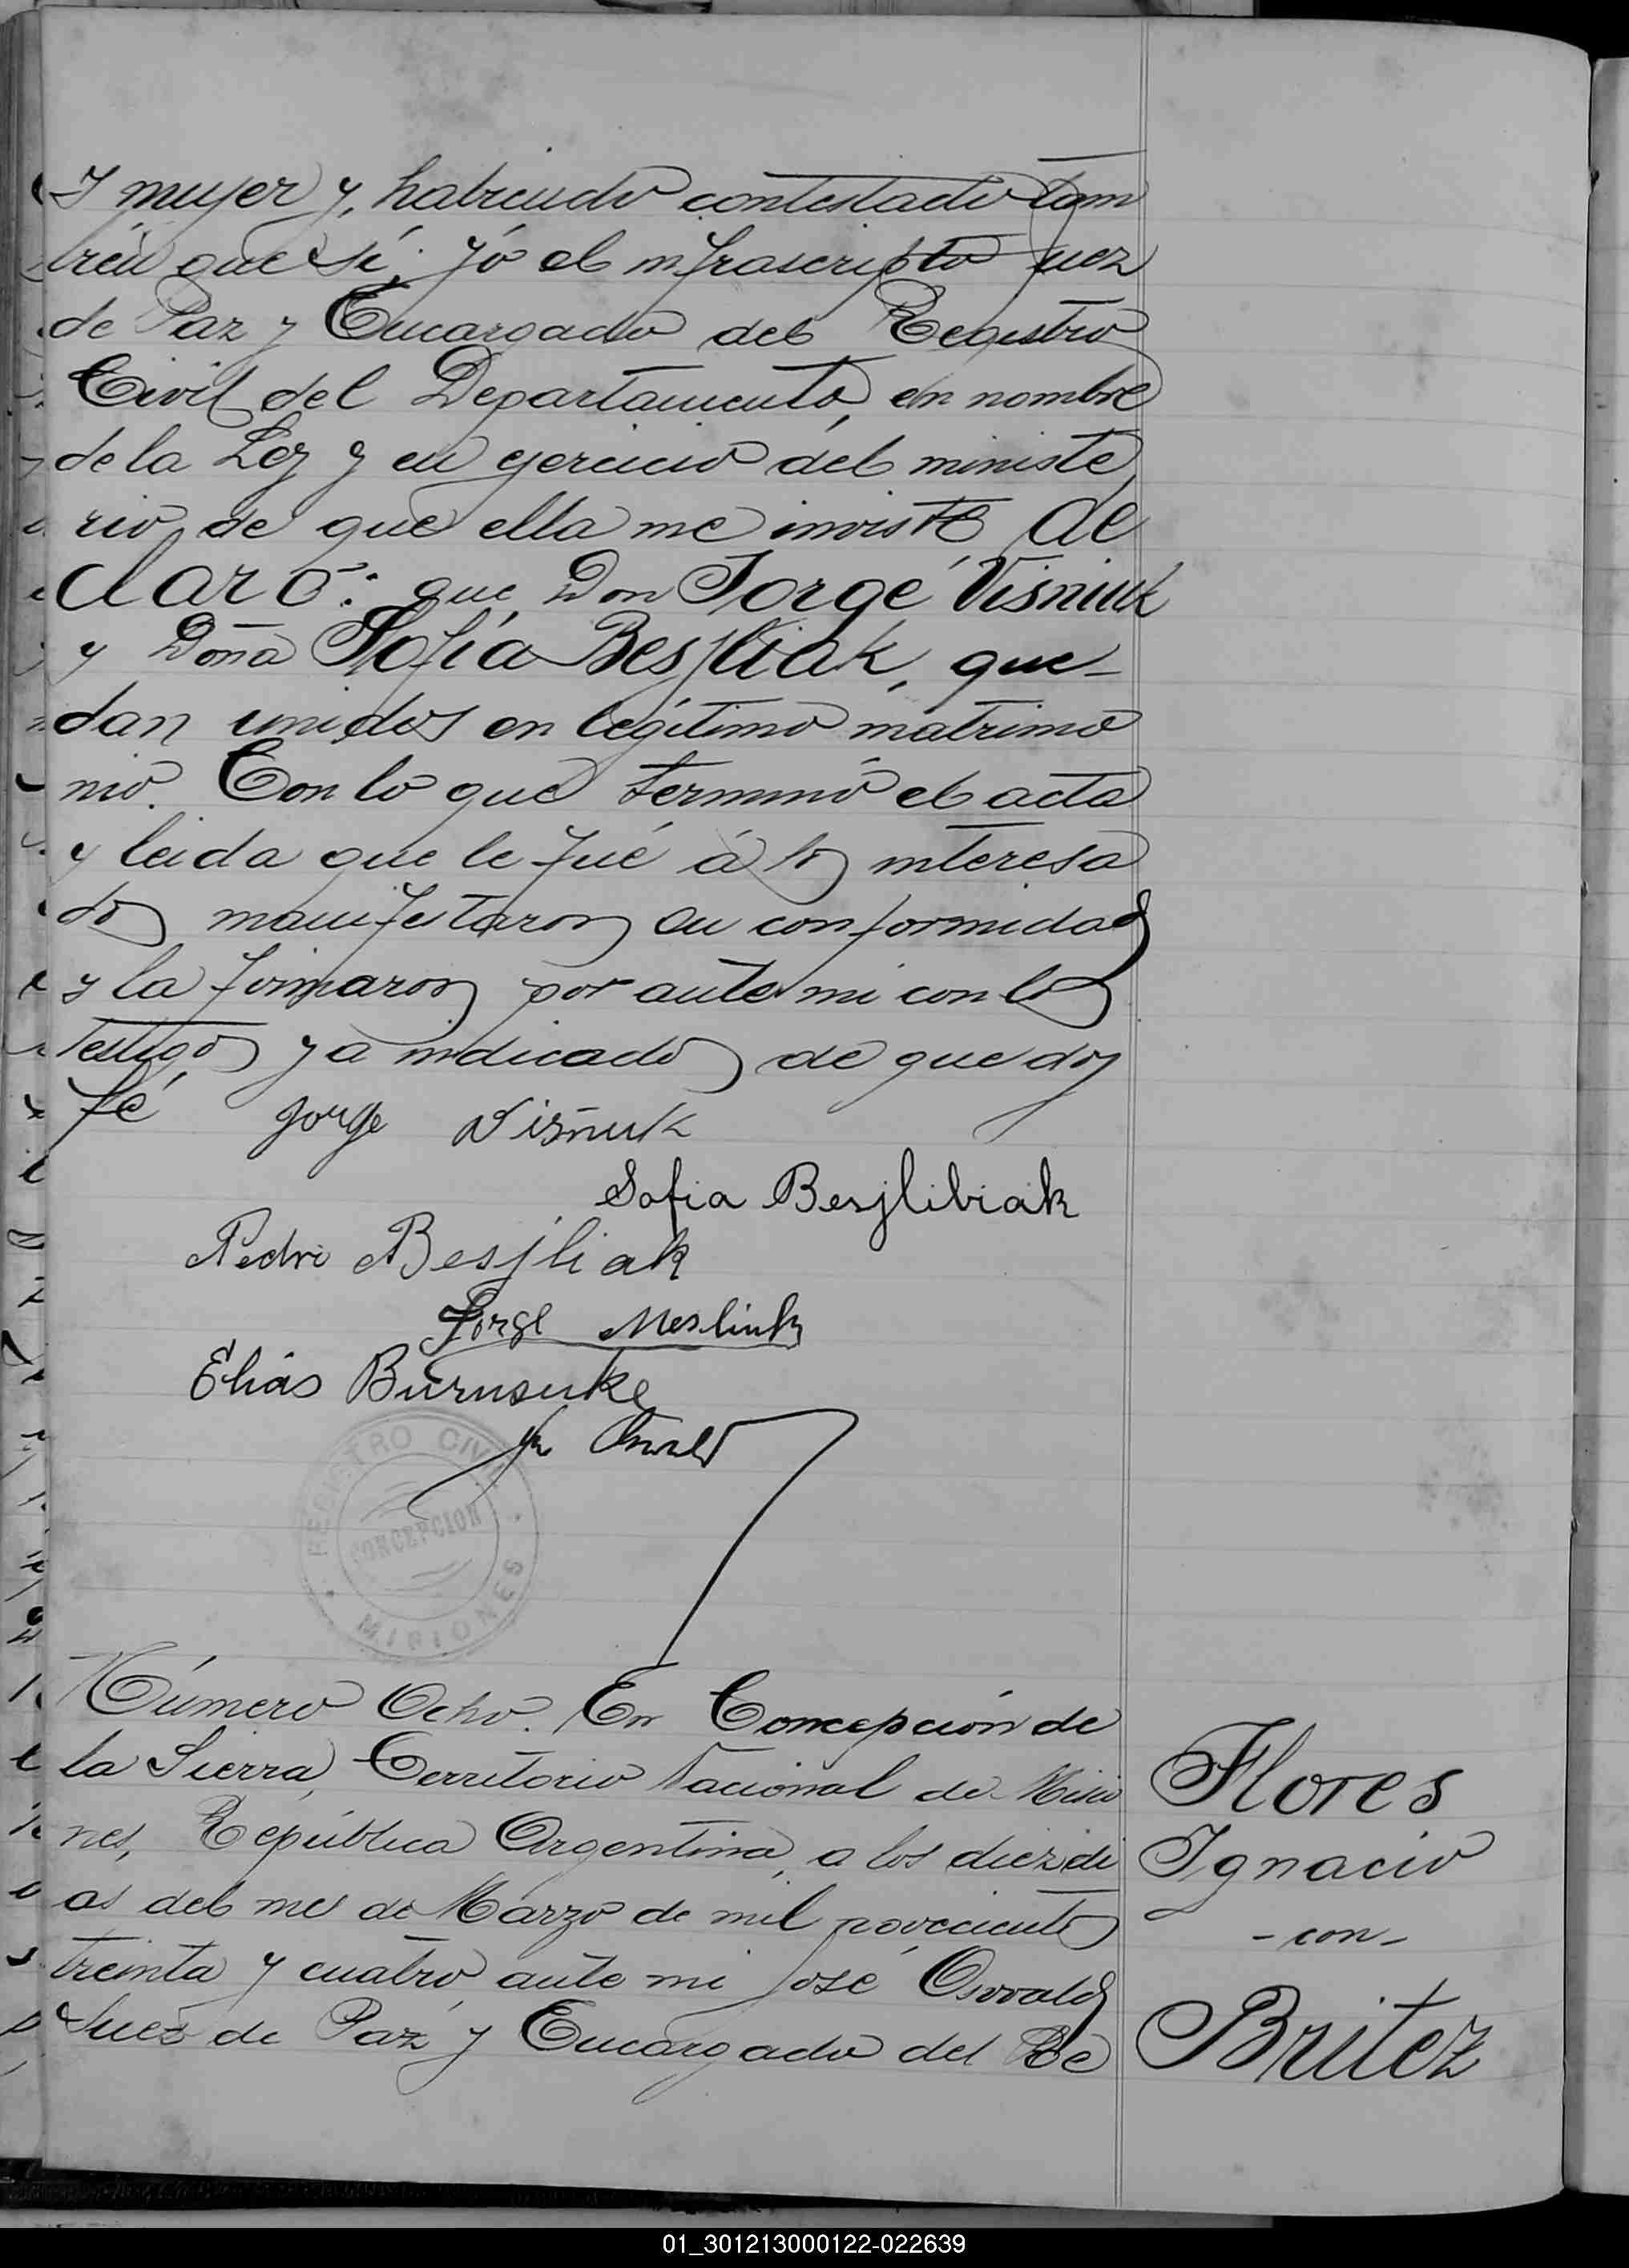 y mujer y, habiendo contestado tam
bién que sí; yó el infrascripto Juez
de Paz y Encargado del Registro
Civil del Departamento, en nombre
de la Ley y en ejercicio del ministe
rio de que ella me inviste, de
claro: que Don Jorge Visniuk
y Doña Sofía Besjliak, que-
dan unidos en legítimo matrimo
nio. Con lo que terminó el acta
y leida que le fué á los interesa
dos manifestaron su conformidad
y la firmaron por ante mi con los
testigos ya indicados de que doy
fé Jorge Visñuk
Sofia Besjlibiak
Pedro Besjliak
Jorge Mesliuk
Elias Burnsuke
REGISTRO CIVIL
CONCEPCION
MISIONES
Número Ocho. En Concepción de
la Sierra, Territorio Nacional de Misio
nes, República Argentina, a los diez di
as del mes de Marzo de mil novecientos
treinta y cuatro, ante mi José Osvald
Juez de Paz y Encargado del Re
Flores
Ignacio
- con -
Britez
01_301213000122-022639